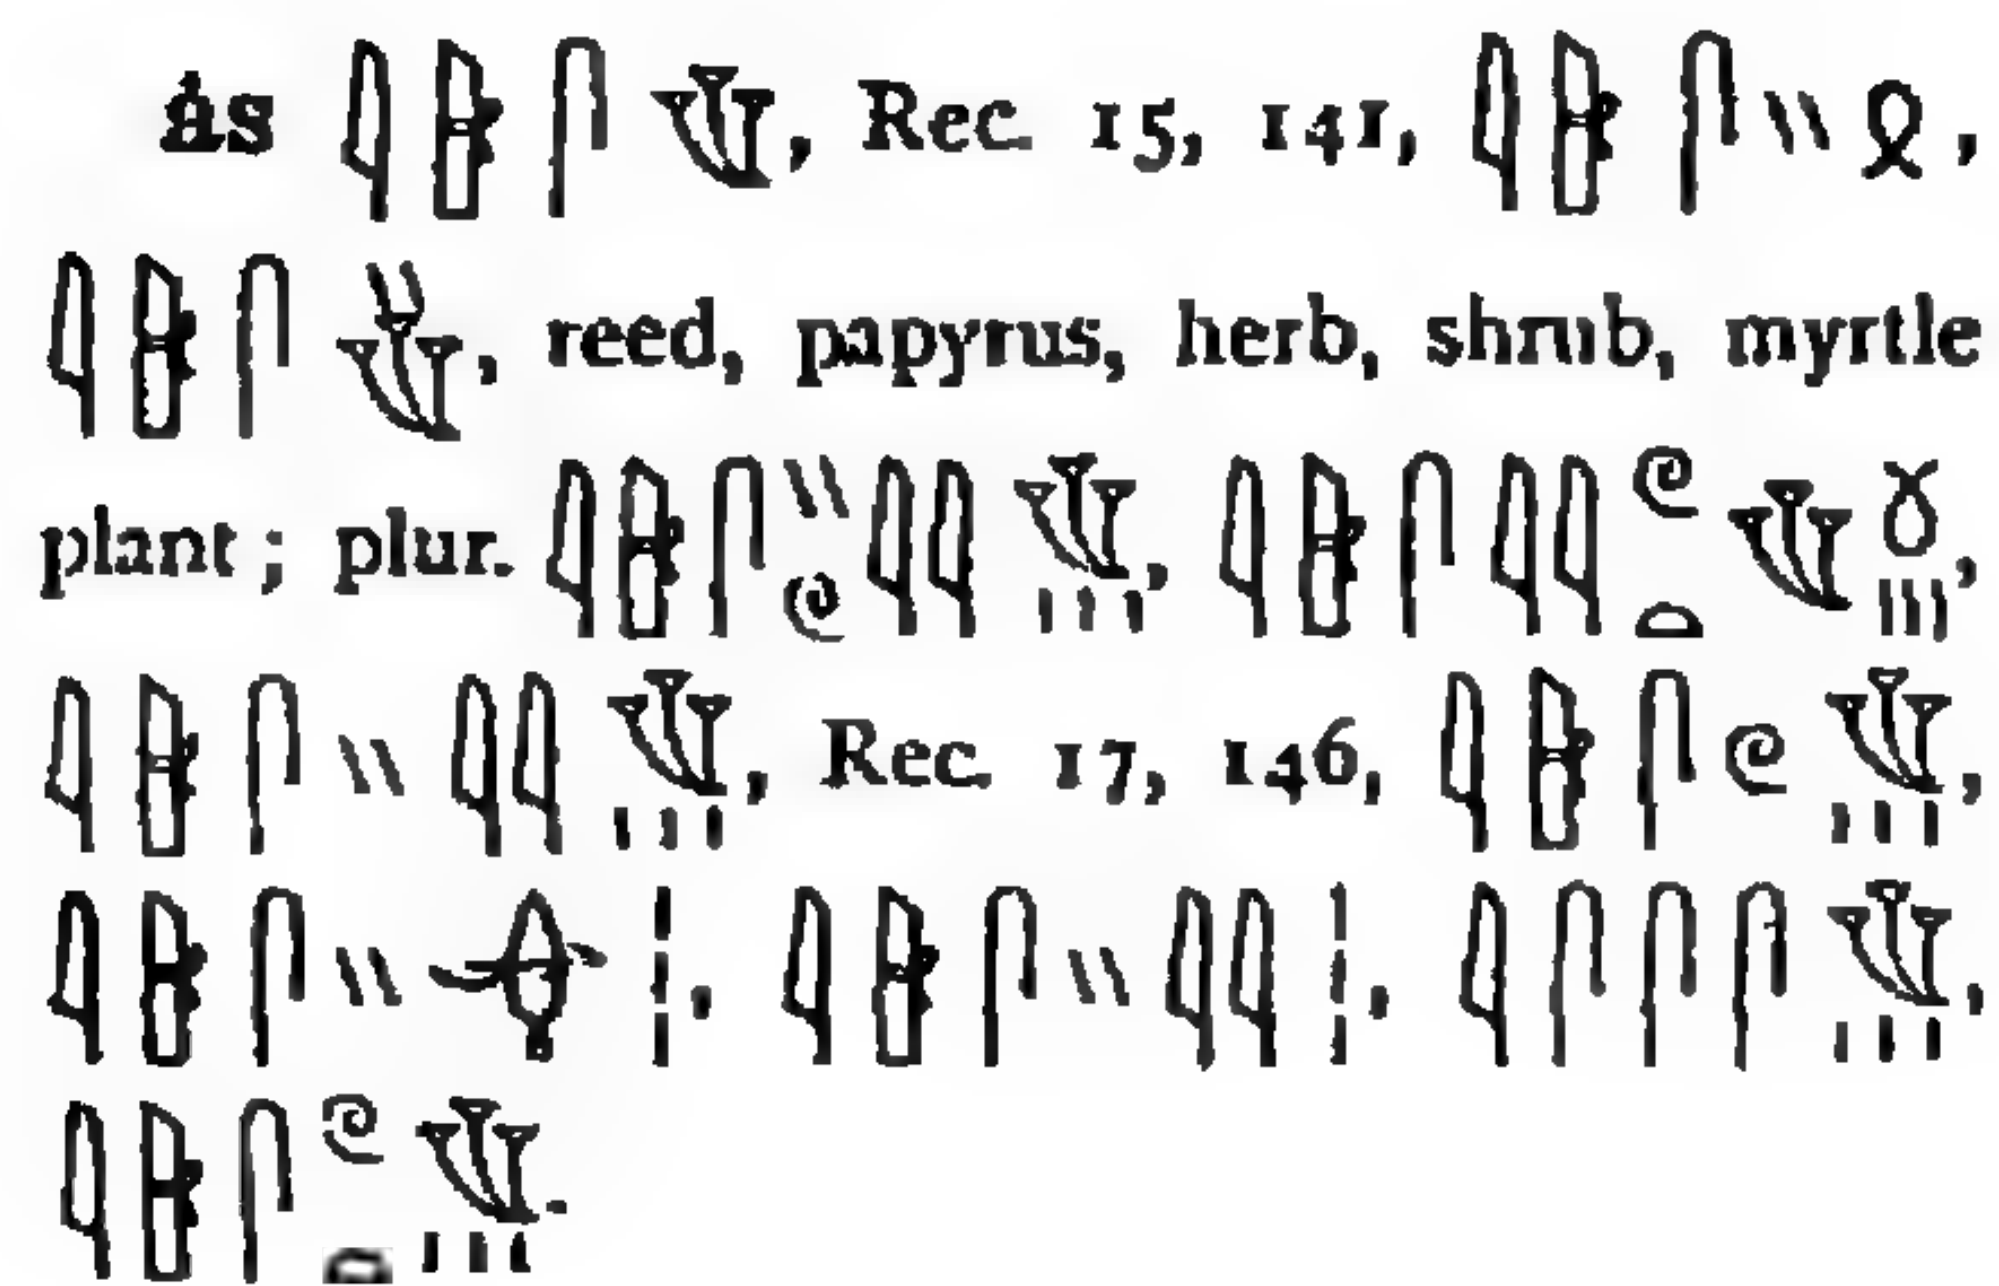 ȧs 𓇋𓇩𓋴𓆰, Rec. 15, 141, 𓇋𓇩𓋴𓏭𓍲,
𓇋𓇩𓋴𓆰, reed, papyrus, herb, shrub, myrtle
plant; plur. 𓇋𓇩𓋴𓏭𓏲𓇋𓇋𓆰𓏥, 𓇋𓇩𓋴𓇋𓇋𓏲𓏏𓆰𓍱𓏥,
𓇋𓇩𓋴𓏭𓇋𓇋𓆰𓏥, Rec. 17, 146, 𓇋𓇩𓋴𓏲𓆰𓏥,
𓇋𓇩𓋴𓏭𓏪, 𓇋𓇩𓋴𓏭𓇋𓇋𓏪, 𓇋𓋴𓋴𓋴𓆰𓏥,
𓇋𓇩𓋴𓏲𓏏𓆰𓏥.